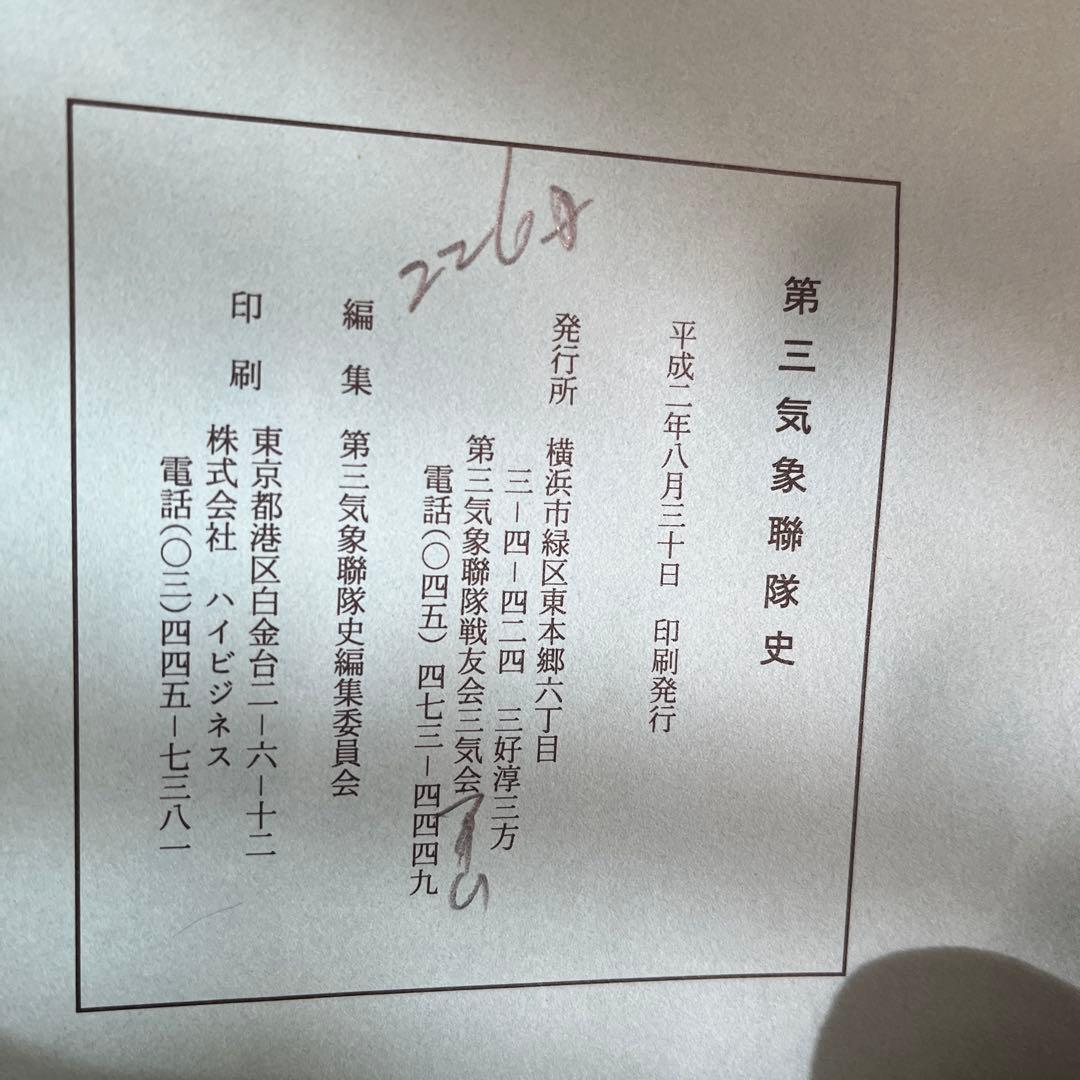 第三気象聯隊史
平成二年八月三十日 印刷発行
発行所 横浜市緑区東本郷六丁目
三－四－四二四 三好淳三方
第三気象聯隊戦友会三気会
電話(〇四五)四七三－四四四九
編集 第三気象聯隊史編集委員会
印刷 東京都港区白金台二－六－十二
株式会社 ハイビジネス
電話(〇三)四四五－七三八一